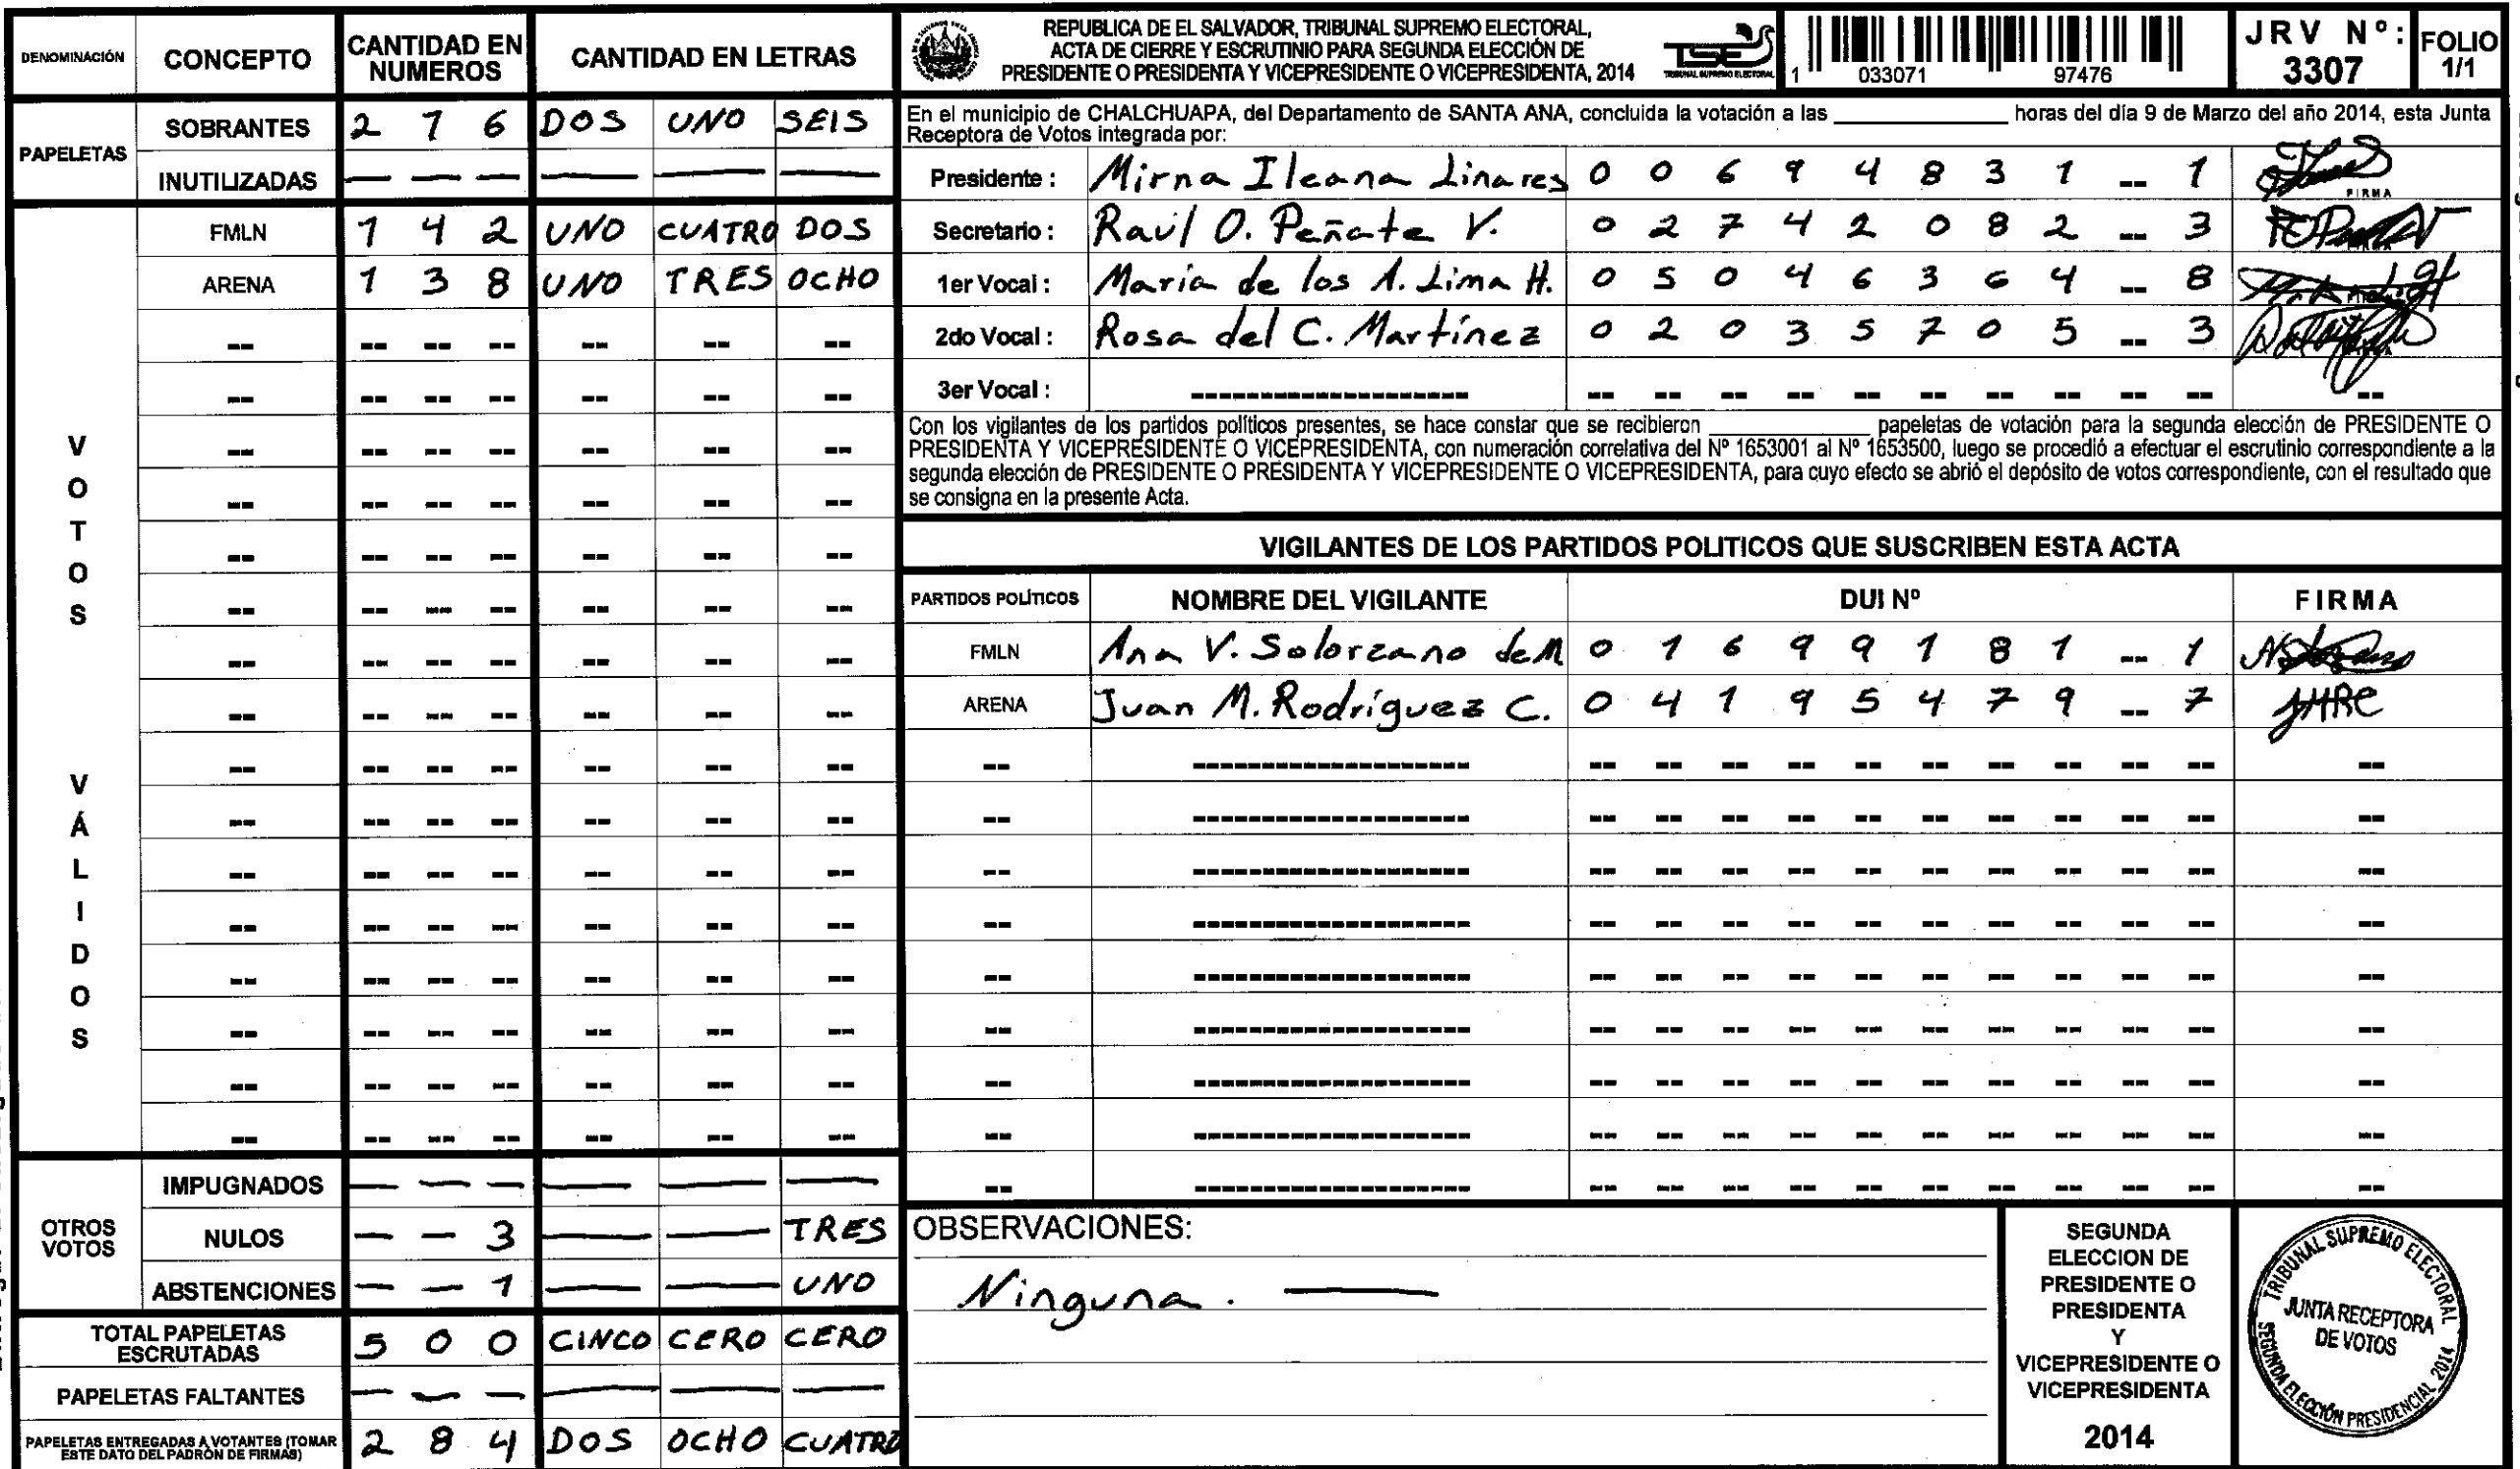 DENOMINACIÓN CONCEPTO CANTIDAD EN NUMEROS CANTIDAD EN LETRAS
PAPELETAS
SOBRANTES 2 1 6 DOS UNO SEIS
INUTILIZADAS — — — — — —
VOTOS VÁLIDOS
FMLN 1 4 2 UNO CUATRO DOS
ARENA 1 3 8 UNO TRES OCHO
-- -- -- -- -- -- --
-- -- -- -- -- -- --
-- -- -- -- -- -- --
-- -- -- -- -- -- --
-- -- -- -- -- -- --
-- -- -- -- -- -- --
-- -- -- -- -- -- --
-- -- -- -- -- -- --
-- -- -- -- -- -- --
-- -- -- -- -- -- --
-- -- -- -- -- -- --
-- -- -- -- -- -- --
-- -- -- -- -- -- --
-- -- -- -- -- -- --
-- -- -- -- -- -- --
-- -- -- -- -- -- --
OTROS VOTOS
IMPUGNADOS — — — — — —
NULOS — — 3 — — TRES
ABSTENCIONES — — 1 — — UNO
TOTAL PAPELETAS ESCRUTADAS 5 0 0 CINCO CERO CERO
PAPELETAS FALTANTES — — — — — —
PAPELETAS ENTREGADAS A VOTANTES (TOMAR ESTE DATO DEL PADRÓN DE FIRMAS) 2 8 4 DOS OCHO CUATRO
REPUBLICA DE EL SALVADOR, TRIBUNAL SUPREMO ELECTORAL,
ACTA DE CIERRE Y ESCRUTINIO PARA SEGUNDA ELECCIÓN DE
PRESIDENTE O PRESIDENTA Y VICEPRESIDENTE O VICEPRESIDENTA, 2014
TSE
TRIBUNAL SUPREMO ELECTORAL
1 033071 97476
JRV Nº: 3307
FOLIO 1/1
En el municipio de CHALCHUAPA, del Departamento de SANTA ANA, concluida la votación a las ____________ horas del día 9 de Marzo del año 2014, esta Junta
Receptora de Votos integrada por:
Presidente : Mirna Ileana Linares 0 0 6 9 4 8 3 1 -- 1
FIRMA
Secretario : Raúl O. Peñate V. 0 2 7 4 2 0 8 2 -- 3
1er Vocal : María de los A. Lima H. 0 5 0 4 6 3 6 4 -- 8
2do Vocal : Rosa del C. Martínez 0 2 0 3 5 7 0 5 -- 3
3er Vocal : ------------------ -- -- -- -- -- -- -- -- -- -- --
Con los vigilantes de los partidos políticos presentes, se hace constar que se recibieron ____________ papeletas de votación para la segunda elección de PRESIDENTE O
PRESIDENTA Y VICEPRESIDENTE O VICEPRESIDENTA, con numeración correlativa del Nº 1653001 al Nº 1653500, luego se procedió a efectuar el escrutinio correspondiente a la
segunda elección de PRESIDENTE O PRESIDENTA Y VICEPRESIDENTE O VICEPRESIDENTA, para cuyo efecto se abrió el depósito de votos correspondiente, con el resultado que
se consigna en la presente Acta.
VIGILANTES DE LOS PARTIDOS POLITICOS QUE SUSCRIBEN ESTA ACTA
PARTIDOS POLÍTICOS NOMBRE DEL VIGILANTE DUI Nº FIRMA
FMLN Ana V. Solorzano de M 0 1 6 9 9 1 8 1 -- 1
ARENA Juan M. Rodríguez C. 0 4 1 9 5 4 7 9 -- 7 JMRC
-- ------------------ -- -- -- -- -- -- -- -- -- -- --
-- ------------------ -- -- -- -- -- -- -- -- -- -- --
-- ------------------ -- -- -- -- -- -- -- -- -- -- --
-- ------------------ -- -- -- -- -- -- -- -- -- -- --
-- ------------------ -- -- -- -- -- -- -- -- -- -- --
-- ------------------ -- -- -- -- -- -- -- -- -- -- --
-- ------------------ -- -- -- -- -- -- -- -- -- -- --
-- ------------------ -- -- -- -- -- -- -- -- -- -- --
-- ------------------ -- -- -- -- -- -- -- -- -- -- --
OBSERVACIONES:
Ninguna. ——
SEGUNDA
ELECCION DE
PRESIDENTE O
PRESIDENTA
Y
VICEPRESIDENTE O
VICEPRESIDENTA
2014
TRIBUNAL SUPREMO ELECTORAL
JUNTA RECEPTORA
DE VOTOS
SEGUNDA ELECCIÓN PRESIDENCIAL 2014